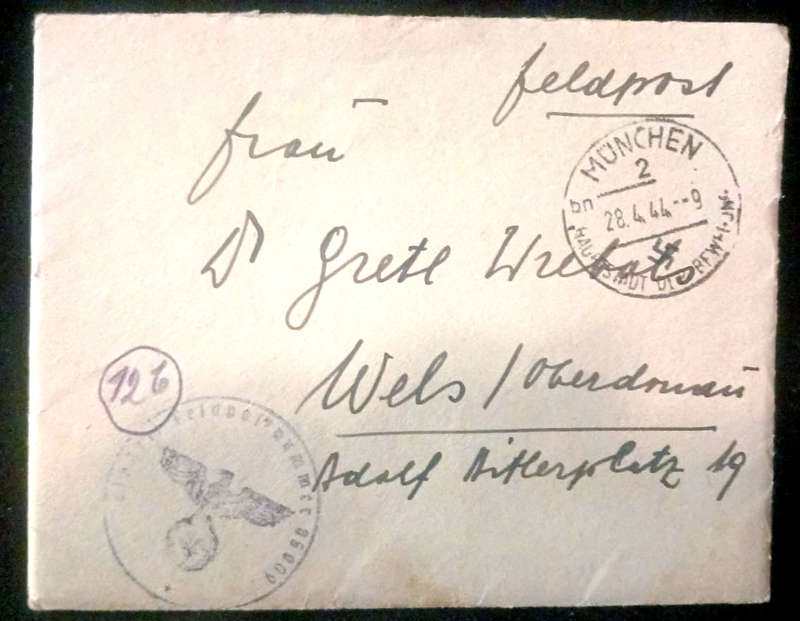 Feldpost
Frau
Dr Grete
Wels / Oberdonau
Adolf Hitlerplatz 19
MÜNCHEN
2
bn
28.4.44.--9
HAUPTSTADT DER BEWEGUNG
126
Feldpostnummer 06009